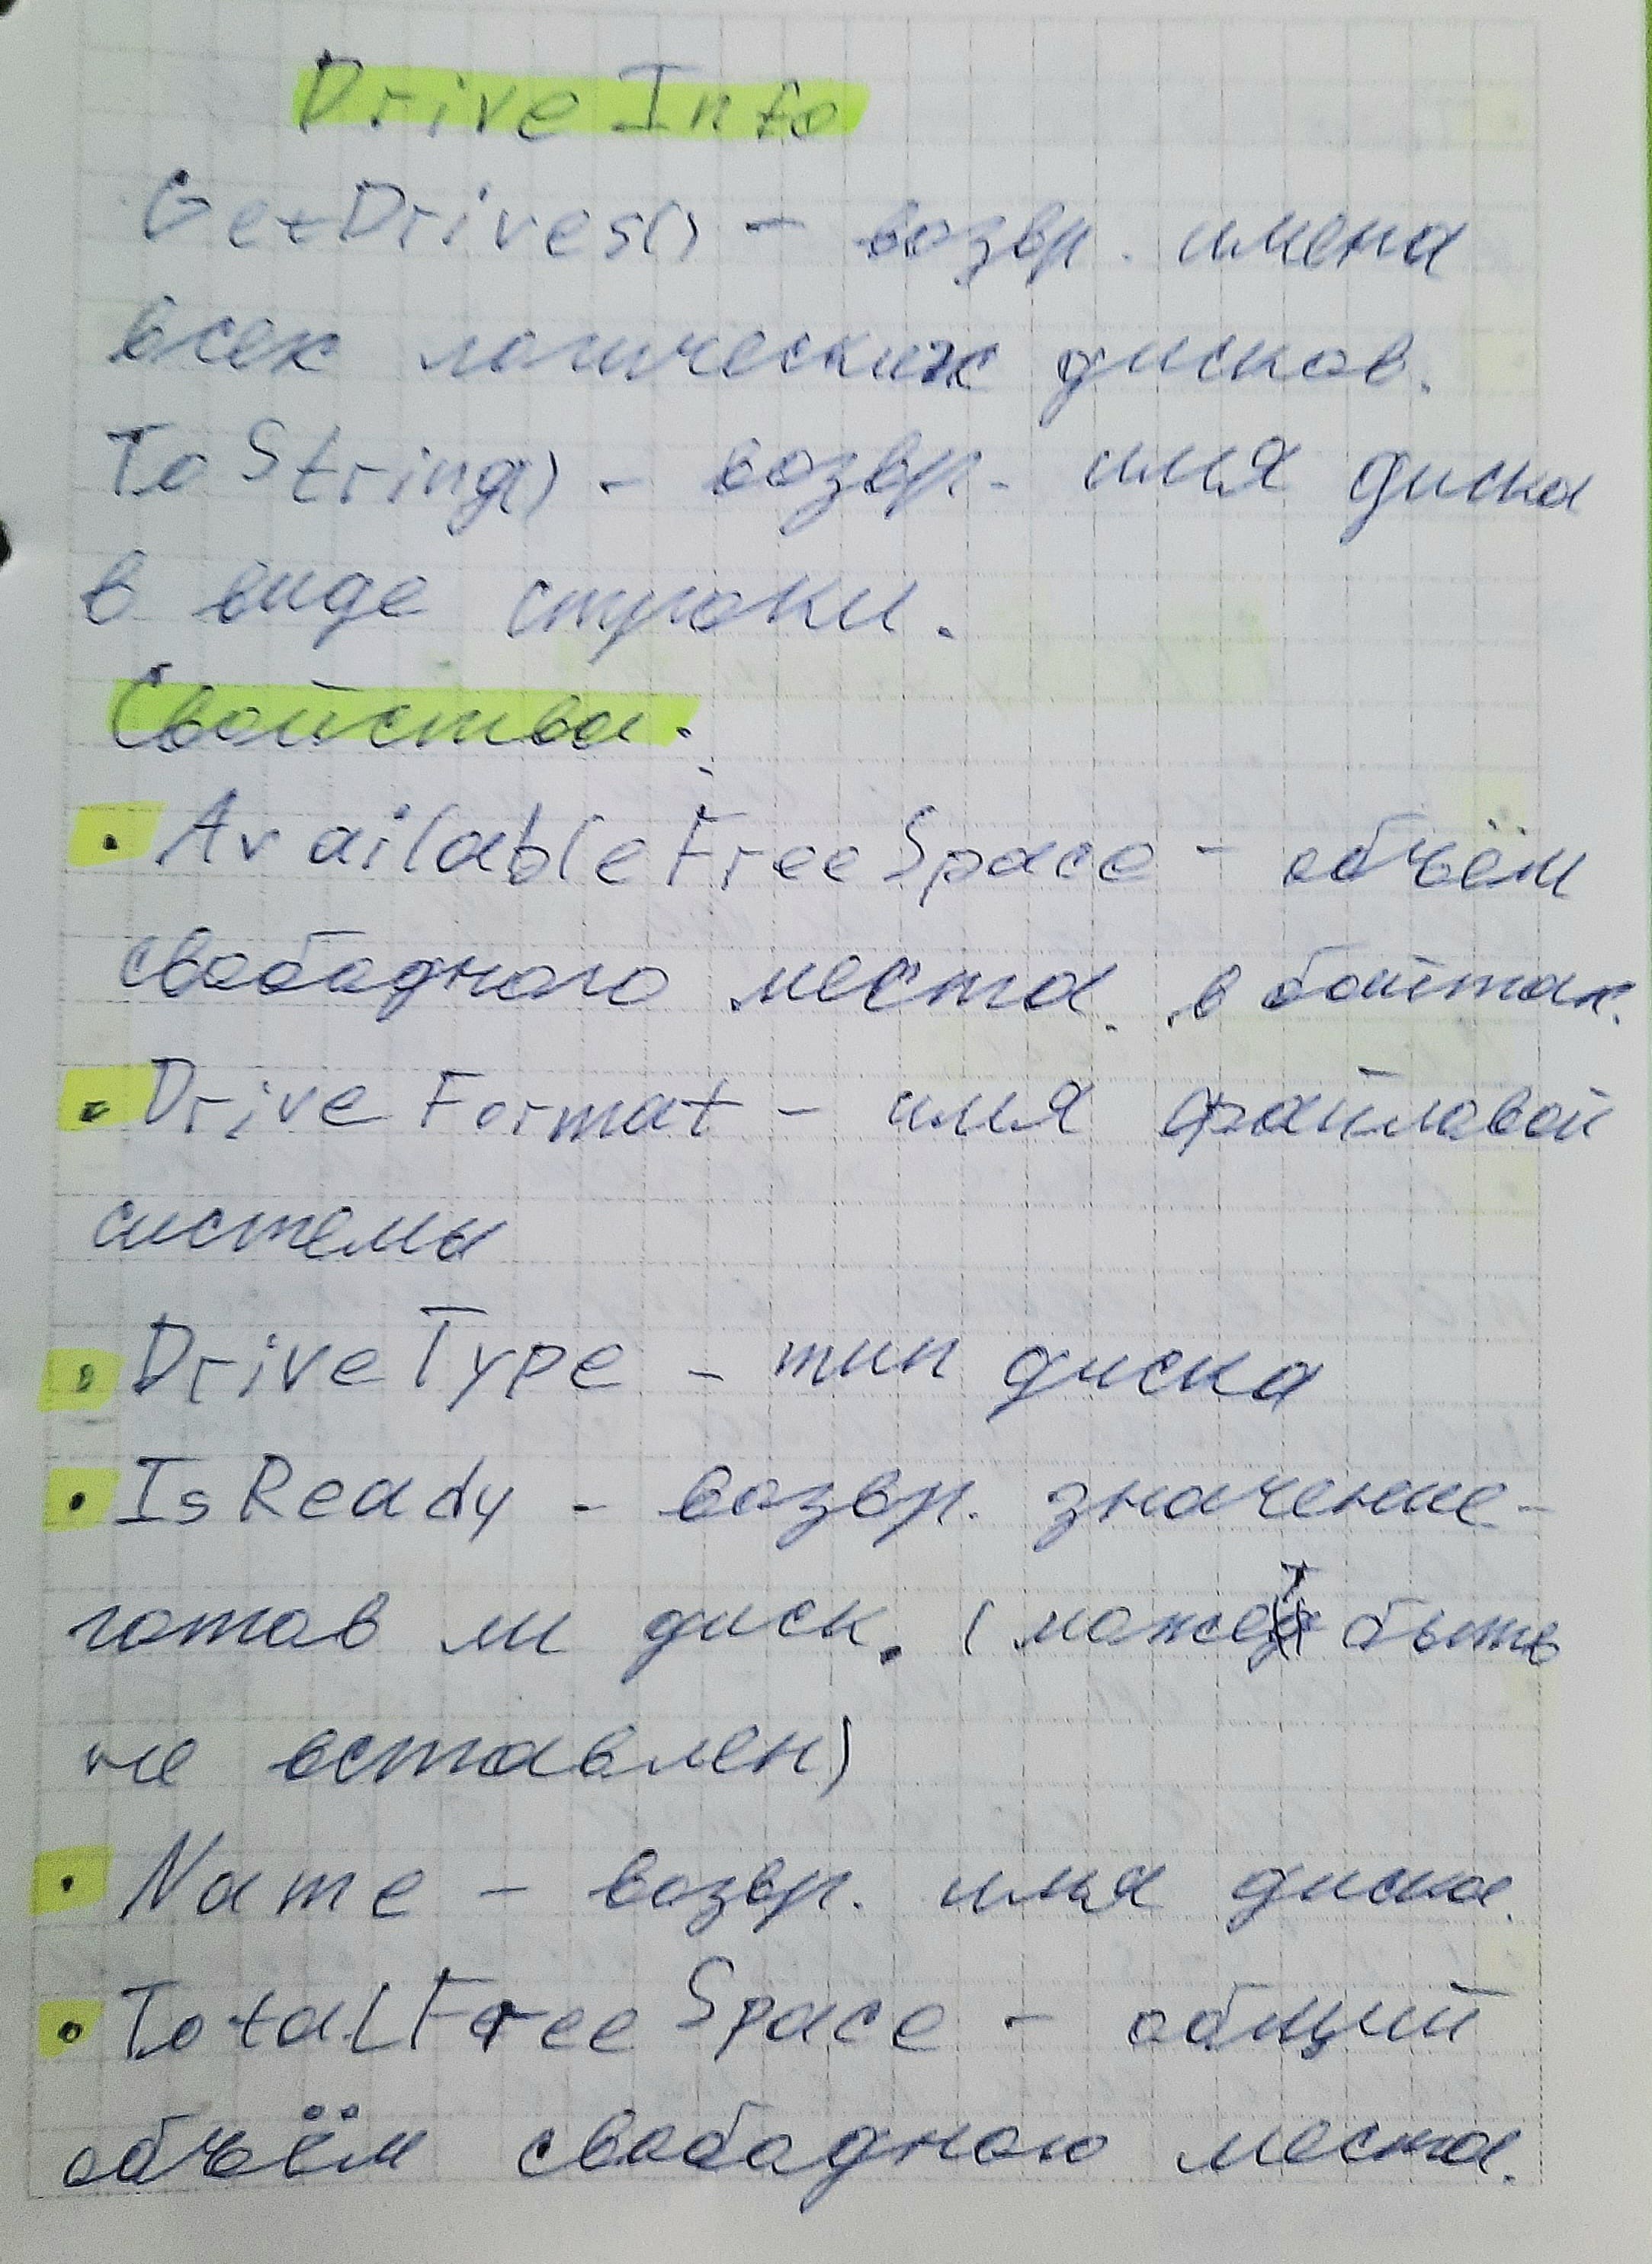 DriveInfo
GetDrives() - возвр. имена
всех логических дисков.
ToString() - возвр. имя диска
в виде строки.
Свойства.
• AvailableFreeSpace - объём
свободного места в байтах.
• DriveFormat - имя файловой
системы
• DriveType - тип диска
• IsReady - возвр. значение -
готов ли диск. (может быть
не вставлен)
• Name - возвр. имя диска.
• TotalFreeSpace - общий
объём свободного места.